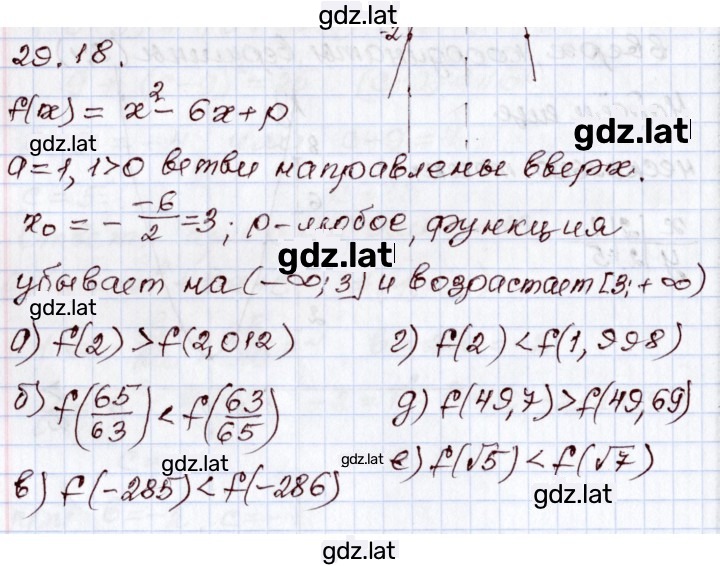 gdz.lat
-2
29.18.
f(x) = x² - 6x + p
gdz.lat
gdz.lat
a=1, 1>0 ветви направлены вверх.
x₀ = - -6/2 = 3; p - любое, функция
gdz.lat
убывает на (-∞; 3] и возрастает [3; +∞)
а) f(2) > f(2,012)
г) f(2) < f(1,998)
б) f(65/63) < f(63/65)
д) f(49,7) > f(49,69)
gdz.lat
gdz.lat
е) f(√5) < f(√7)
в) f(-285) < f(-286)
gdz.lat
gdz.lat